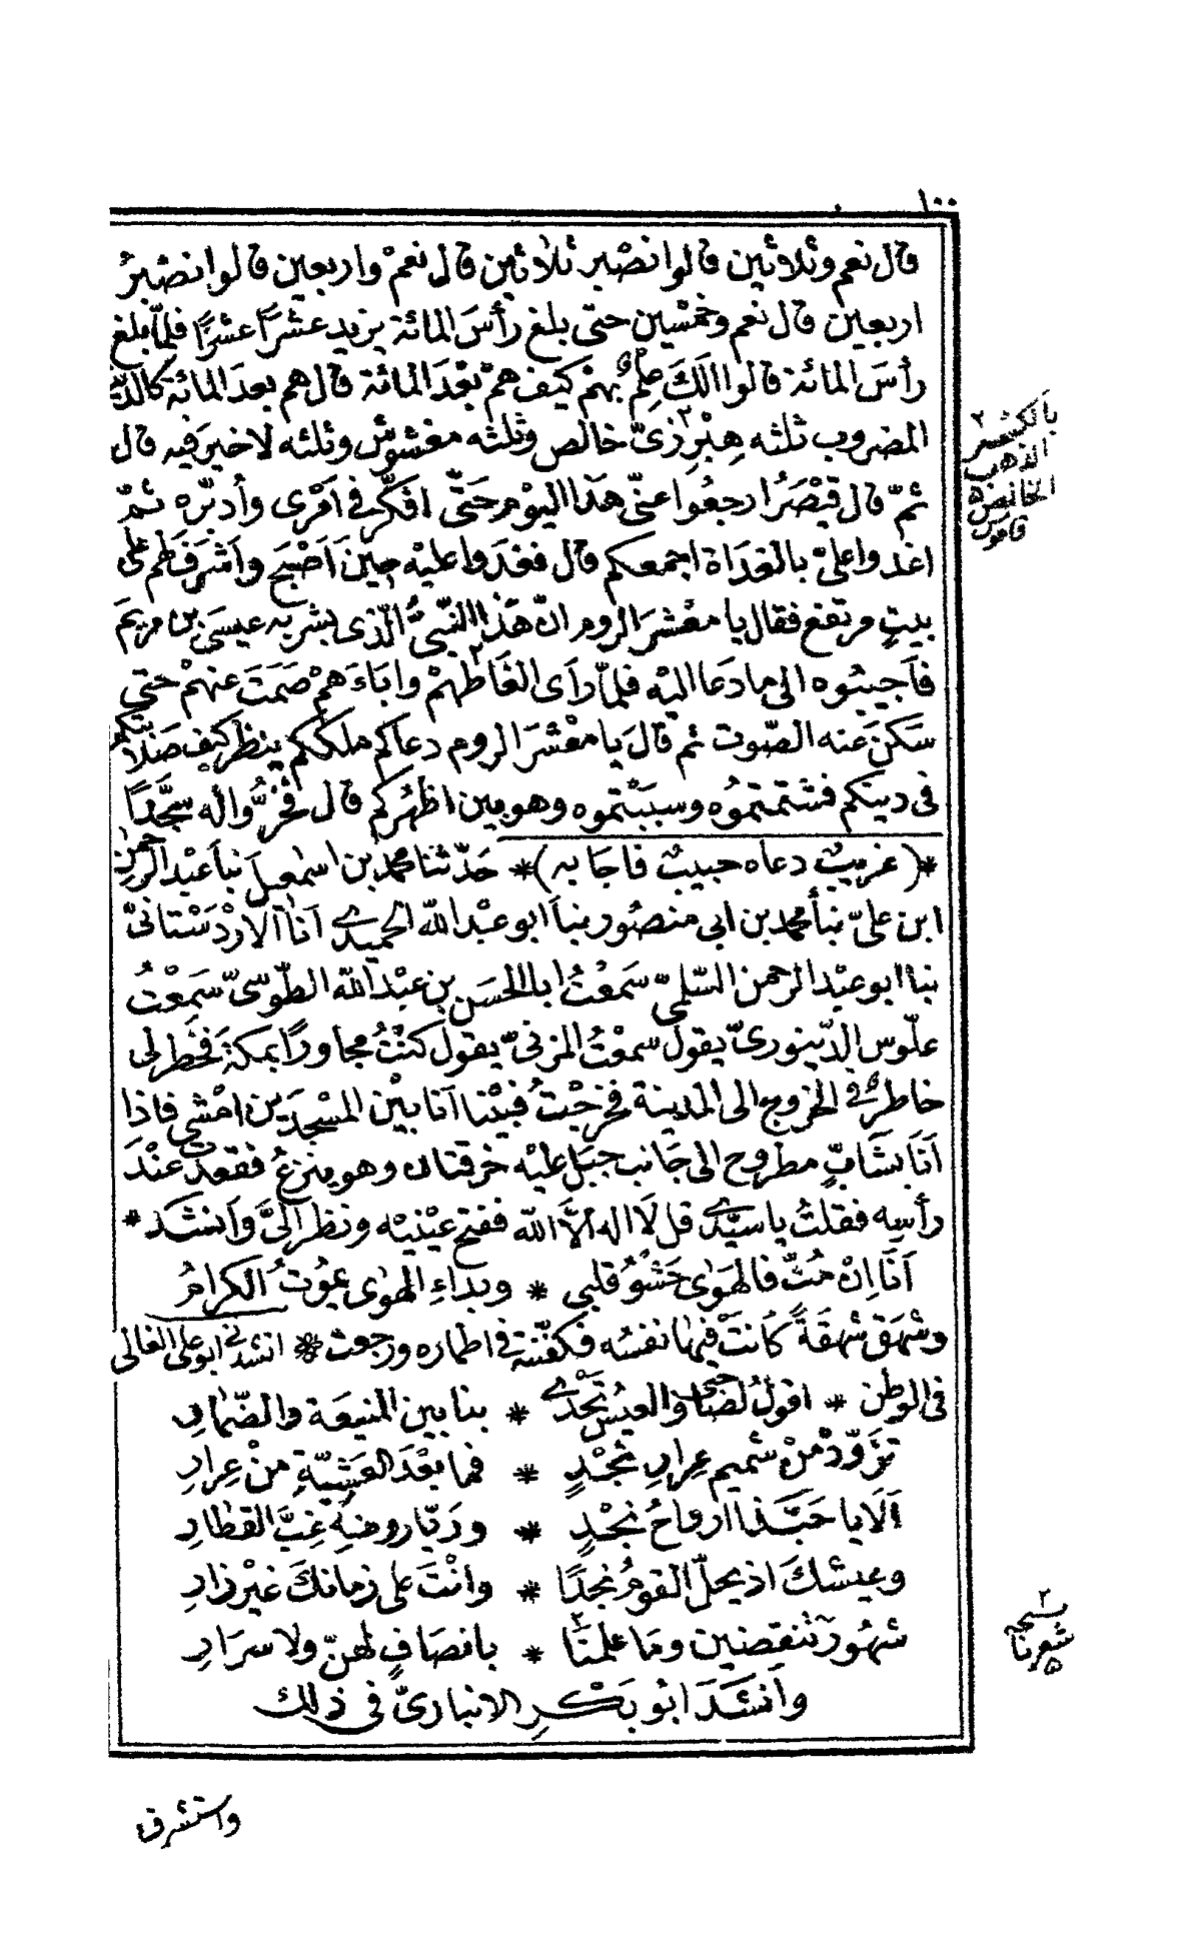 ١٠٠
قال نعم وثلاثين قالوا نصْبر ثلاثين قال نعمْ واربعين قالوا نصْبِرُ
اربعين قال نعم وخمْسِين حتى بلغ رأسَ المائة يزيد عشرًا عشرًا فلمّا بلغ
رأسَ المائة قالوا الَكَ عِلمٌ بهمْ كيف همْ بَعْدَ المائة قال هم بعدَ المائة كالدّ
المضروب ثلثه هِبْرِزىّ خالص وثلثه مغشوش وثلثه لا خير فيه قال
ثمّ قال قيْصَرُ ارجعُوا عنىّ هذا اليوْمرحَتّى افكّر فى اَمْرى وأدبّره ثمّ
اغدوا علىّ بالغداة اجمعكم قال فغدوا عليْه حِينَ اَصْبَح واَشْرَفَ لهم على
بيتٍ مرتفع فقال يا معْشرَ الروم انّ هَذا النّبىُّ الّذى بشر به عيسَى بن مريمَ
فاَجيبُوه الى ما دعَا اليْه فلمّا رأى الغَاطهُمْ واباءَ همْ صَمَتَ عنهمْ حتى
سَكنَ عنه الصّوت ثم قالَ يا معْشرَ الروم دعاكم ملككم ينظر كيْف صَلابتكم
فى دينكم فشتمتموُه وسببْتموه وهو بين اظهُركم قال فخرُّوا له سجَّدًا
*( غريبٌ دعاه حبيبٌ فاجابه )* حَدّثنا محمد بن اسْمعيل نبا عبْد الرحمن
ابن علىّ نبأ محمد بن ابى منصُور نبا اَبو عبْد الله الحميدے اَنا الارْدَسْتانىّ
نبا ابو عبْد الرحمن السّلمىّ سَمعْتُ ابا الحسَن بن عبْد الله الطّوسىّ سَمعْتُ
علّوس الدّينورىّ يقول سمعْتُ المزنىّ يقول كنْتُ مجاورًا بمكة فخَطر لى
خاطرٌ فى الخروج الى المدينة فخرجْتُ فبيْنا اَنا بيْن المسْجدَين امْشى فاذا
اَنَا بشَابٍّ مطروح الى جَانب جبَل عليْه خرقتان وهو ينزعُ فقعدتُ عنْدَ
رأسِه فقلتُ يا سيّدے قل لَا اله الَّا الله ففتح عيْنيْه ونظر الَىَّ واَنشدَ *
اَنَا اِنْ مُتُّ فالهَوٰى حَشْوُ قلبى * وبداءِ الهوٰى يموُتُ الكرامُ
وشهَقَ شهقَةً كَانَتْ فيها نفسُه فكفّنته فى اطماره ورجعت * انشدنى ابو على القالى
فى الوطن * اقولُ لصَاحبى والعيْس تَخْدے * بنا بين المنيفَة والضّمارِ
تَزَوّدْ منْ شميم عِرارِ نجْدٍ * فما بعْدَ العَشيّةِ منْ عِرارِ
اَلَا يا حَبّذا ارواحُ نجْدٍ * ورَيّا روضِهِ غِبَّ القطارِ
وعيشكَ اذ يحلّ القومُ نجدًا * وانْتَ على زمانكَ غيْر زارِ
شهُورٌ تنقضين ومَا علمنَا * بانصَافٍ لهنّ ولا سرَارِ
واَنشَدَ ابُو بَكْرِ الانبارىّ فى ذلك
بالكسر
الذهب
الخالص
قاموس
نسخه
شعرنا
واستشرف